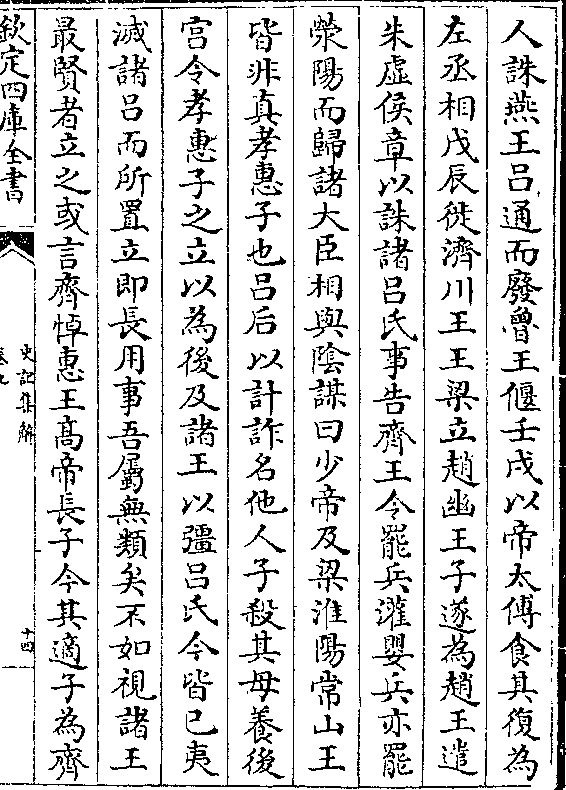 人誅燕王呂通而廢魯王偃壬戌以帝太傅食其復為
左丞相戊辰徙濟川王王梁立趙幽王子遂為趙王遣
朱虛侯章以誅諸呂氏事告齊王令罷兵灌嬰兵亦罷
滎陽而歸諸大臣相與陰謀曰少帝及梁淮陽常山王
皆非真孝惠子也呂后以計詐名他人子殺其母養後
宮令孝惠子之立以為後及諸王以彊呂氏今皆已夷
滅諸呂而所置立即長用事吾屬無類矣不如視諸王
最賢者立之或言齊悼惠王髙帝長子今其適子為齊
欽定四庫全書
史記集解
卷九
十四